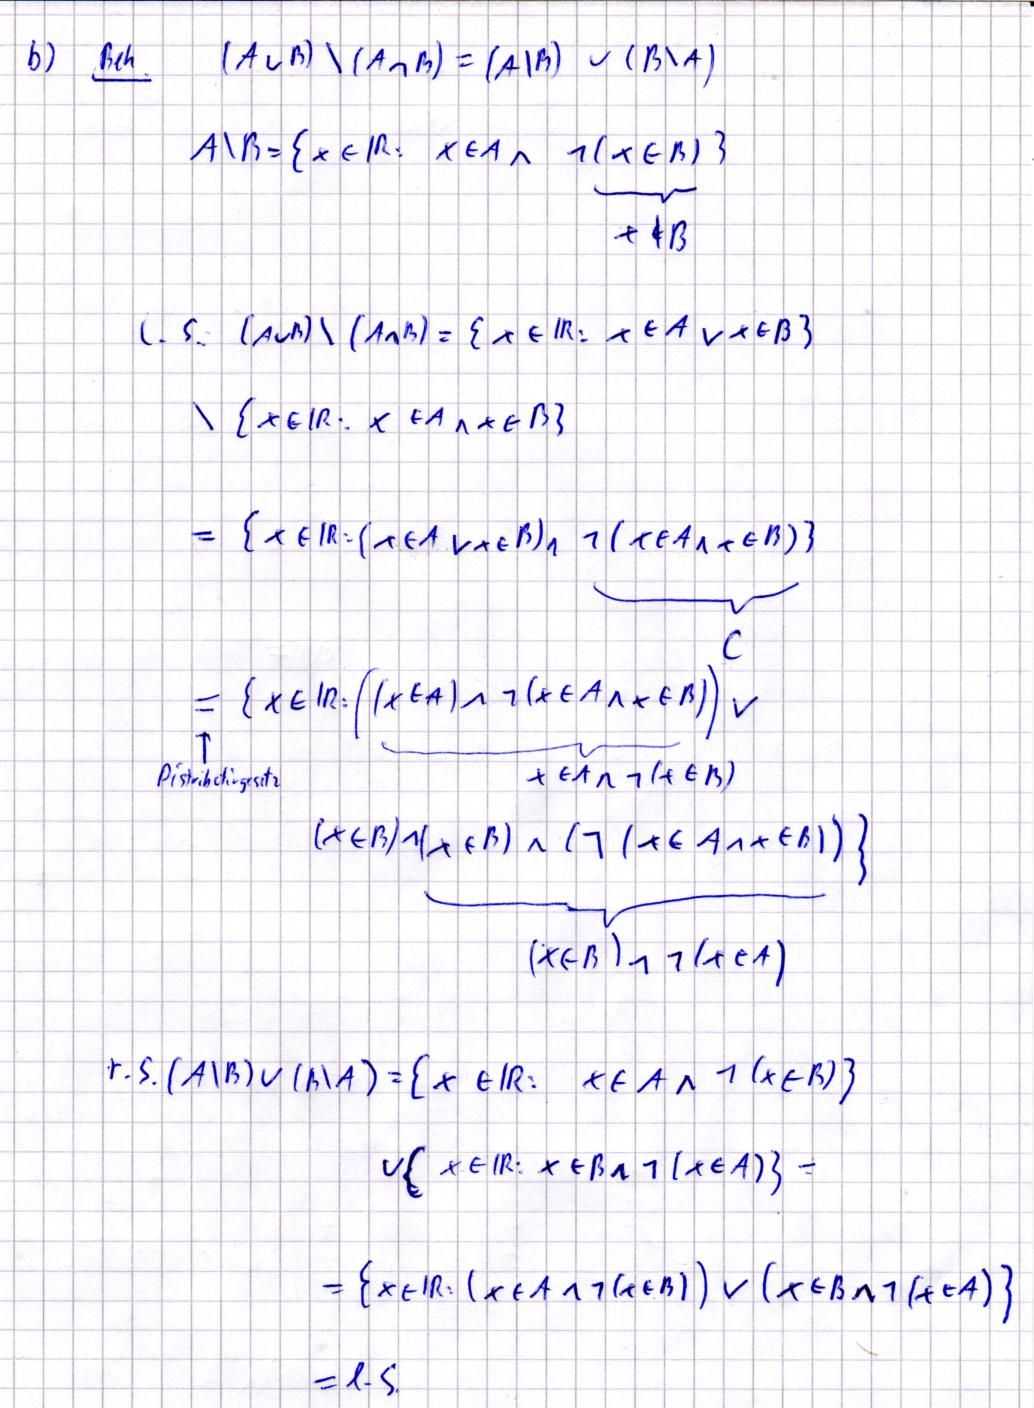 b) Beh. (A∪B)\(A∩B) = (A\B) ∪ (B\A)
A\B = {x ∈ ℝ: x ∈ A ∧ ¬(x ∈ B)}
x ∉ B
l. S. (A∪B)\(A∩B) = {x ∈ ℝ: x ∈ A ∨ x ∈ B}
\ {x ∈ ℝ: x ∈ A ∧ x ∈ B}
= {x ∈ ℝ: (x ∈ A ∨ x ∈ B) ∧ ¬(x ∈ A ∧ x ∈ B)}
C
= {x ∈ ℝ: ((x ∈ A) ∧ ¬(x ∈ A ∧ x ∈ B)) ∨
↑
Distributivgesetz x ∈ A ∧ ¬(x ∈ B)
(x ∈ B) ∧ (x ∈ B) ∧ (¬(x ∈ A ∧ x ∈ B))}
(x ∈ B) ∧ ¬(x ∈ A)
r. S. (A\B) ∪ (B\A) = {x ∈ ℝ: x ∈ A ∧ ¬(x ∈ B)}
∪ {x ∈ ℝ: x ∈ B ∧ ¬(x ∈ A)} =
= {x ∈ ℝ: (x ∈ A ∧ ¬(x ∈ B)) ∨ (x ∈ B ∧ ¬(x ∈ A)}
= l. S.